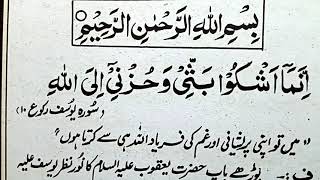 بِسْمِ اللهِ الرَّحْمٰنِ الرَّحِيْمِ
اِنَّمَآ اَشْكُوْا بَثِّيْ وَحُزْنِيْٓ اِلَى اللهِ
(سورہ یوسف رکوع ۱۰)
"میں تو اپنی پریشانی اور غم کی فریاد اللہ ہی سے کرتا ہوں"
ف:۔ بوڑھے باپ حضرت یعقوب علیہ السلام کا نورِ نظر یوسف علیہ